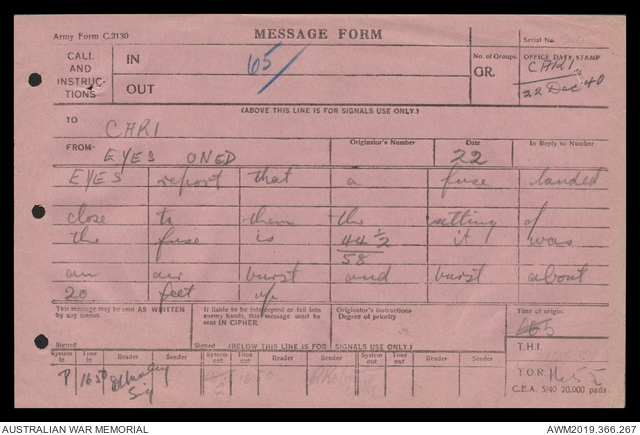 Army Form C.2130
MESSAGE FORM
Serial No.
CALL AND INSTRUC- TIONS
IN
65
No. of Groups.
GR.
OFFICE DATE STAMP
CARI
22 Dec 40
OUT
(ABOVE THIS LINE IS FOR SIGNALS USE ONLY.)
TO
CARI
FROM
EYES ONED
Originator's Number
Date
22
In Reply to Number
EYES report that a fuse landed
close to them the setting of
the fuse is 44½/58 it was
an air burst and burst about
20 feet up.
This message may be sent AS WRITTEN by any means.
If liable to be intercepted or fall into enemy hands, this message must be sent IN CIPHER.
Originator's instructions Degree of priority
Time of origin.
Signed
Signed
(BELOW THIS LINE IS FOR SIGNALS USE ONLY.)
T.H.I.
System in
Time in
Reader
Sender
System out
Time out
Reader
Sender
System out
Time out
Reader
Sender
T.O.R. 1655
P 1650
Sig
C.E.A. 5/40 20,000 pads.
AUSTRALIAN WAR MEMORIAL
AWM2019.366.267